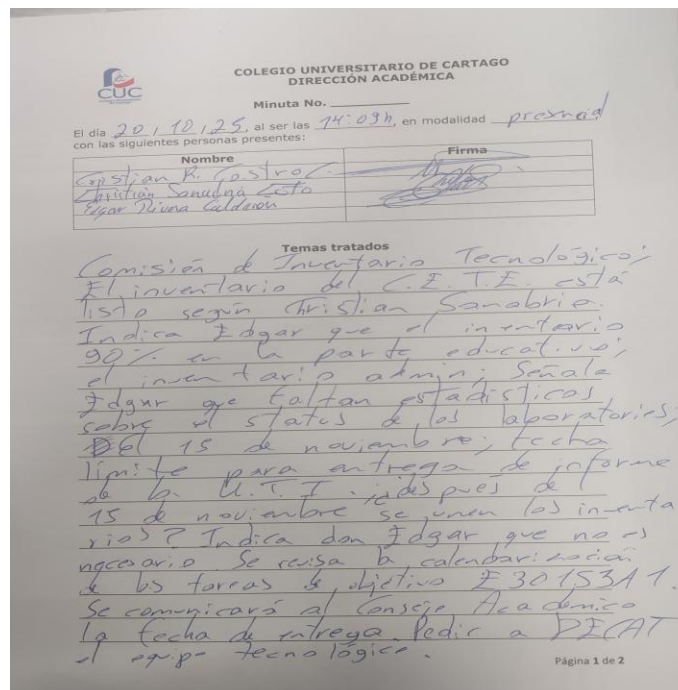 CUC
COLEGIO UNIVERSITARIO DE CARTAGO
DIRECCIÓN ACADÉMICA
Minuta No.
El día 20/10/25, al ser las 14:09h, en modalidad presencial
con las siguientes personas presentes:
Nombre Firma
Cristian R. Castro C.
Christian Sanabria
Edgar Rivera Calderón
Temas tratados
Comisión de Inventario Tecnológico;
El inventario del C.E.T.E. está
listo según Christian Sanabria.
Indica Edgar que el inventario
90% en la parte educativa;
el inventario admin; Señala
Edgar que faltan estadísticas
sobre el status de los laboratories;
El 15 de noviembre; fecha
límite para entrega de informe
de la U.T.I. ¿después de
15 de noviembre se unen los inventa
rios? Indica don Edgar que no es
necesario. Se revisa la calendarización
de los tareas de objetivo E30153A1.
Se comunicará al Consejo Académico
la fecha de entrega. Pedir a DECAT
el equipo tecnológico.
Página 1 de 2